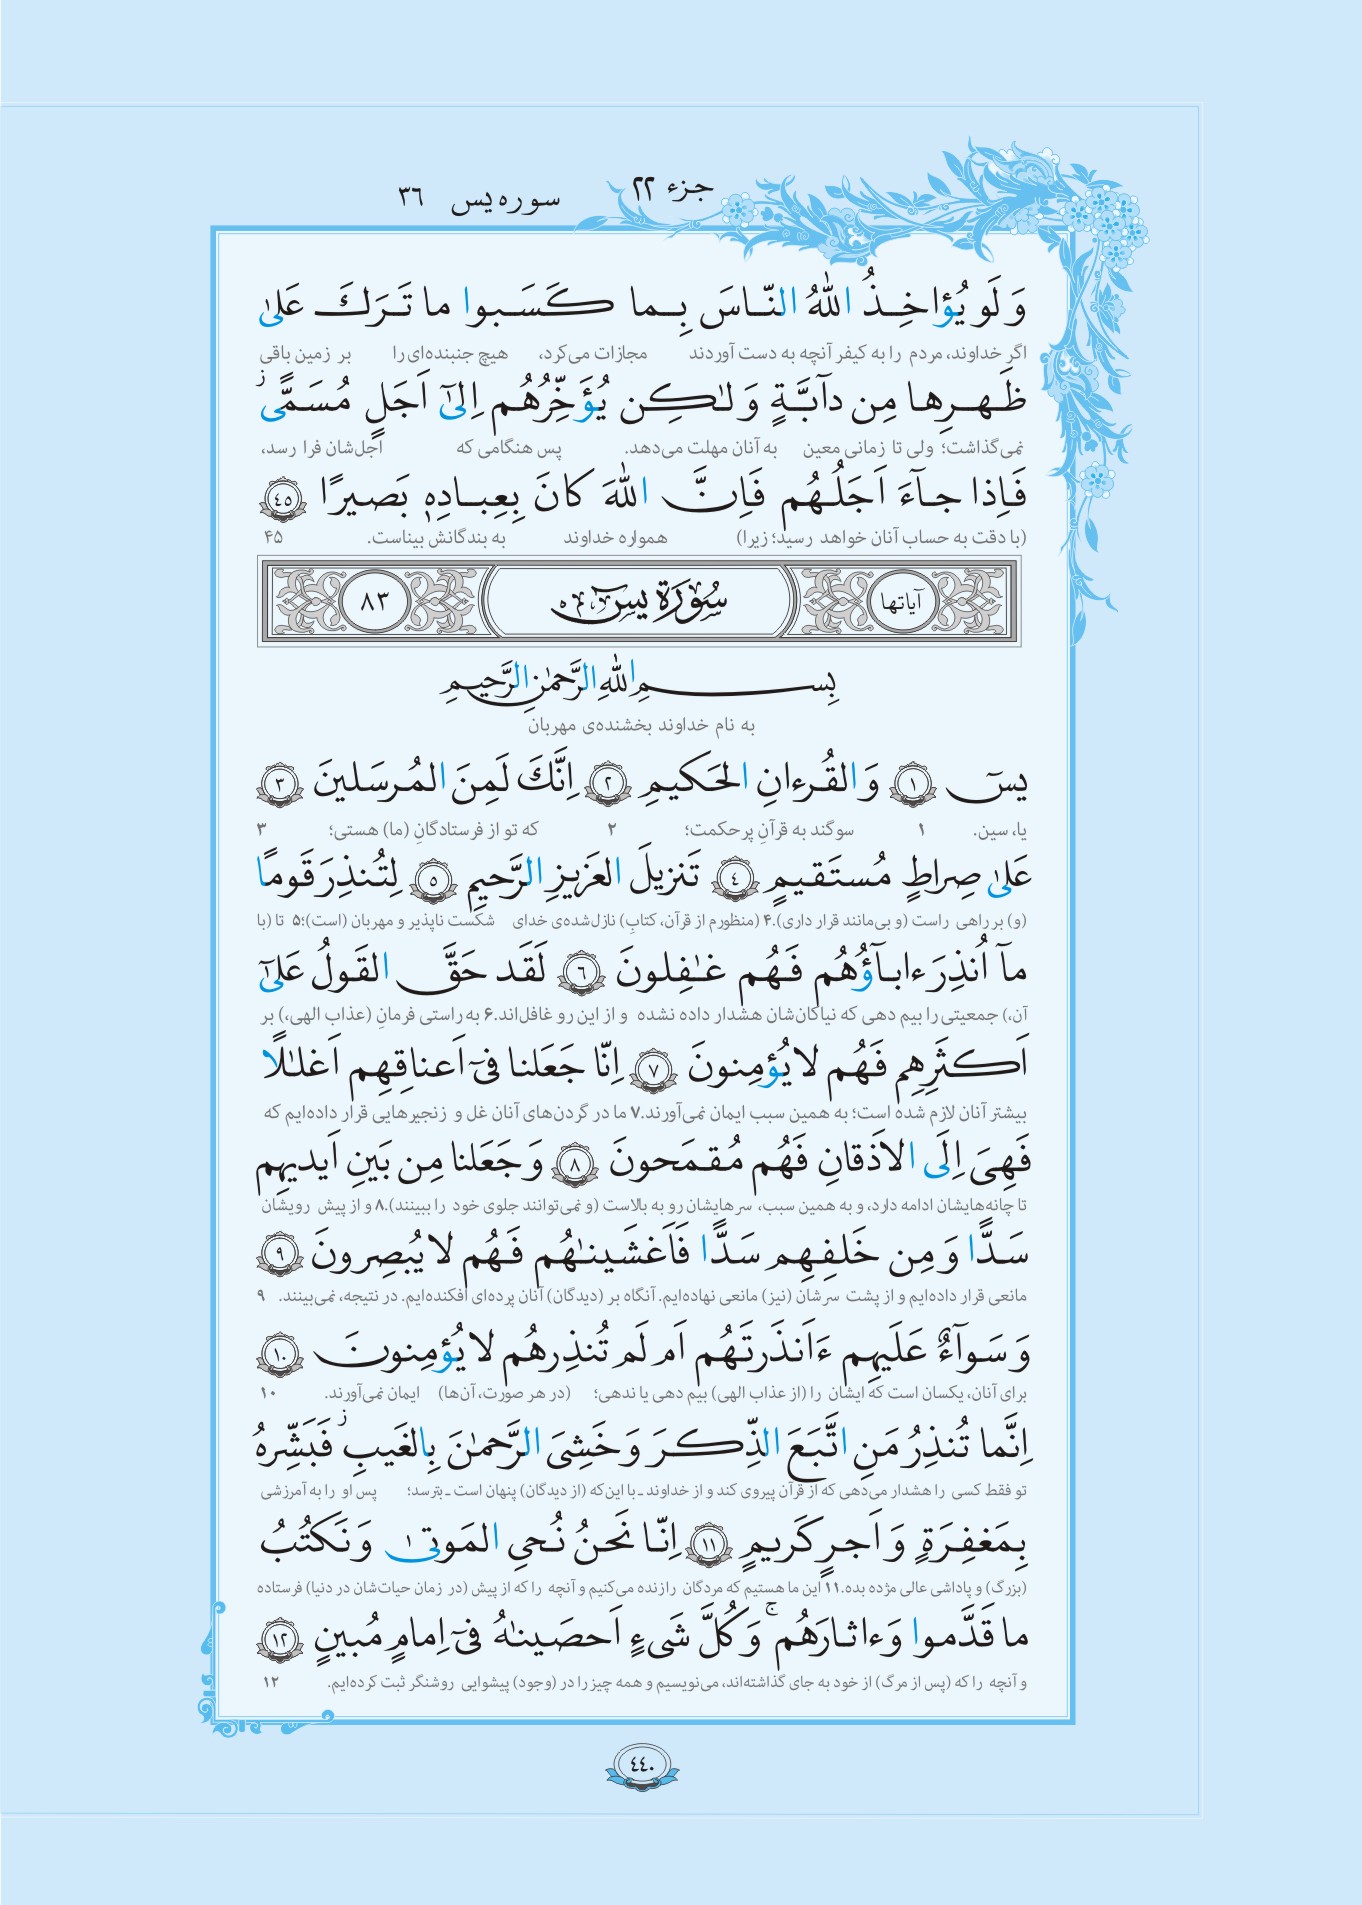 جزء ٢٢
سوره یس ٣٦
وَ لَو یُؤاخِـذُ اللّٰهُ النّـاسَ بِـما کَـسَـبوا ما تَـرَكَ عَلىٰ
اگر خداوند، مردم را به کیفر آنچه به دست آوردند مجازات می‌کرد، هیچ جنبنده‌ای را بر زمین باقی
ظَـهـرِها مِن دآبَّـةٍ وَ لـٰکِـن یُؤَخِّرُهُم اِلىٰٓ اَجَلٍ مُسَمًّىۖ ز
نمی‌گذاشت؛ ولی تا زمانی معین به آنان مهلت می‌دهد. پس هنگامی که اجل‌شان فرا رسد،
فَـاِذا جـآءَ اَجَلُـهُم فَاِنَّ اللّٰهَ کانَ بِعِبـادِهٖ بَصیرًا ٤٥
(با دقت به حساب آنان خواهد رسید؛ زیرا) همواره خداوند به بندگانش بیناست. ۴۵
آیاتها سُورَة یسٓ ٨٣
بِسـمِ اللّٰهِ الرَّحمٰنِ الرَّحیمِ
به نام خداوند بخشنده‌ی مهربان
یسٓ ١ وَ القُرءانِ الحَکیمِ ٢ اِنَّكَ لَمِنَ المُرسَلینَ ٣
یا، سین. ۱ سوگند به قرآنِ پرحکمت؛ ۲ که تو از فرستادگانِ (ما) هستی؛ ۳
عَلىٰ صِراطٍ مُستَقیمٍ ٤ تَنزیلَ العَزیزِ الرَّحیمِ ٥ لِتُنذِرَ قَومًا
(و) بر راهی راست (و بی‌مانند قرار داری).۴ (منظورم از قرآن، کتابِ) نازل‌شده‌ی خدای شکست ناپذیر و مهربان (است)؛۵ تا (با
مآ اُنذِرَ ءابـآؤُهُم فَـهُم غـٰفِلونَ ٦ لَقَد حَقَّ القَولُ عَلىٰٓ
آن،) جمعیتی را بیم دهی که نیاکان‌شان هشدار داده نشده و از این رو غافل‌اند.۶ به راستی فرمانِ (عذاب الهی،) بر
اَکـثَرِهِم فَهُم لا یُؤمِنونَ ٧ اِنّا جَعَلنا فىٓ اَعناقِهِم اَغلـٰلًا
بیشتر آنان لازم شده است؛ به همین سبب ایمان نمی‌آورند.۷ ما در گردن‌های آنان غل و زنجیرهایی قرار داده‌ایم که
فَهِىَ اِلَى الاَذقانِ فَهُم مُقمَحونَ ٨ وَ جَعَلنا مِن بَینِ اَیدیهِم
تا چانه‌هایشان ادامه دارد، و به همین سبب، سرهایشان رو به بالاست (و نمی‌توانند جلوی خود را ببینند).۸ و از پیش رویشان
سَدًّا وَ مِن خَلفِهِم سَدًّا فَاَغشَینـٰهُم فَهُم لا یُبصِرونَ ٩
مانعی قرار داده‌ایم و از پشت سرشان (نیز) مانعی نهاده‌ایم. آنگاه بر (دیدگان) آنان پرده‌ای افکنده‌ایم. در نتیجه، نمی‌بینند. ۹
وَ سَوآءٌ عَلَیهِم ءَاَنذَرتَهُم اَم لَم تُنذِرهُم لا یُؤمِنونَ ١٠
برای آنان، یکسان است که ایشان را (از عذاب الهی) بیم دهی یا ندهی؛ (در هر صورت، آن‌ها) ایمان نمی‌آورند. ۱۰
اِنَّما تُنذِرُ مَنِ اتَّبَعَ الذِّکرَ وَ خَشِىَ الرَّحمٰنَ بِالغَیبِ ز فَبَشِّرهُ
تو فقط کسی را هشدار می‌دهی که از قرآن پیروی کند و از خداوند ـ با این‌که (از دیدگان) پنهان است ـ بترسد؛ پس او را به آمرزشی
بِمَغفِرَةٍ وَ اَجرٍ کَریمٍ ١١ اِنّا نَحنُ نُحىِ المَوتىٰ وَ نَکتُبُ
(بزرگ) و پاداشی عالی مژده بده.۱۱ این ما هستیم که مردگان را زنده می‌کنیم و آنچه را که از پیش (در زمان حیات‌شان در دنیا) فرستاده
ما قَدَّموا وَ ءاثـارَهُم ۚ وَ کُلَّ شَىءٍ اَحصَینـٰهُ فىٓ اِمامٍ مُبینٍ ١٢
و آنچه را که (پس از مرگ) از خود به جای گذاشته‌اند، می‌نویسیم و همه چیز را در (وجود) پیشوایی روشنگر ثبت کرده‌ایم. ۱۲
٤٤٠